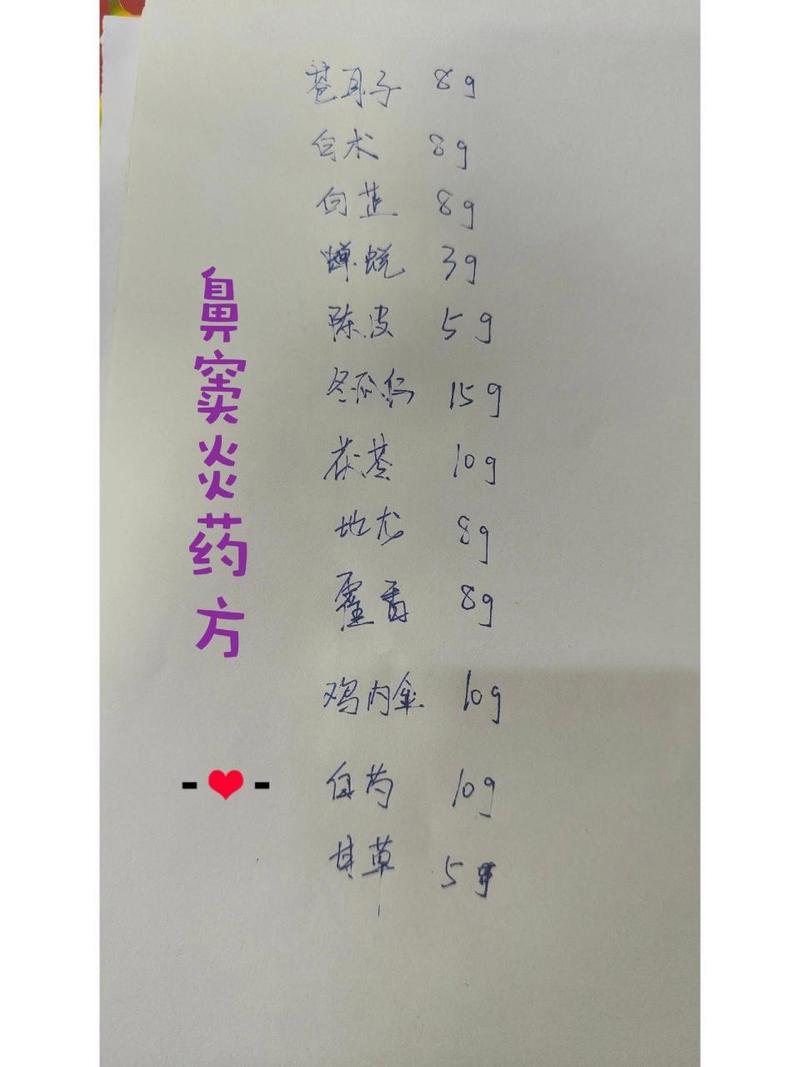 苍耳子 8g
白术 8g
白芷 8g
蝉蜕 3g
陈皮 5g
冬瓜仁 15g
茯苓 10g
地龙 8g
霍香 8g
鸡内金 10g
白芍 10g
甘草 5g
鼻窦炎药方
-❤-